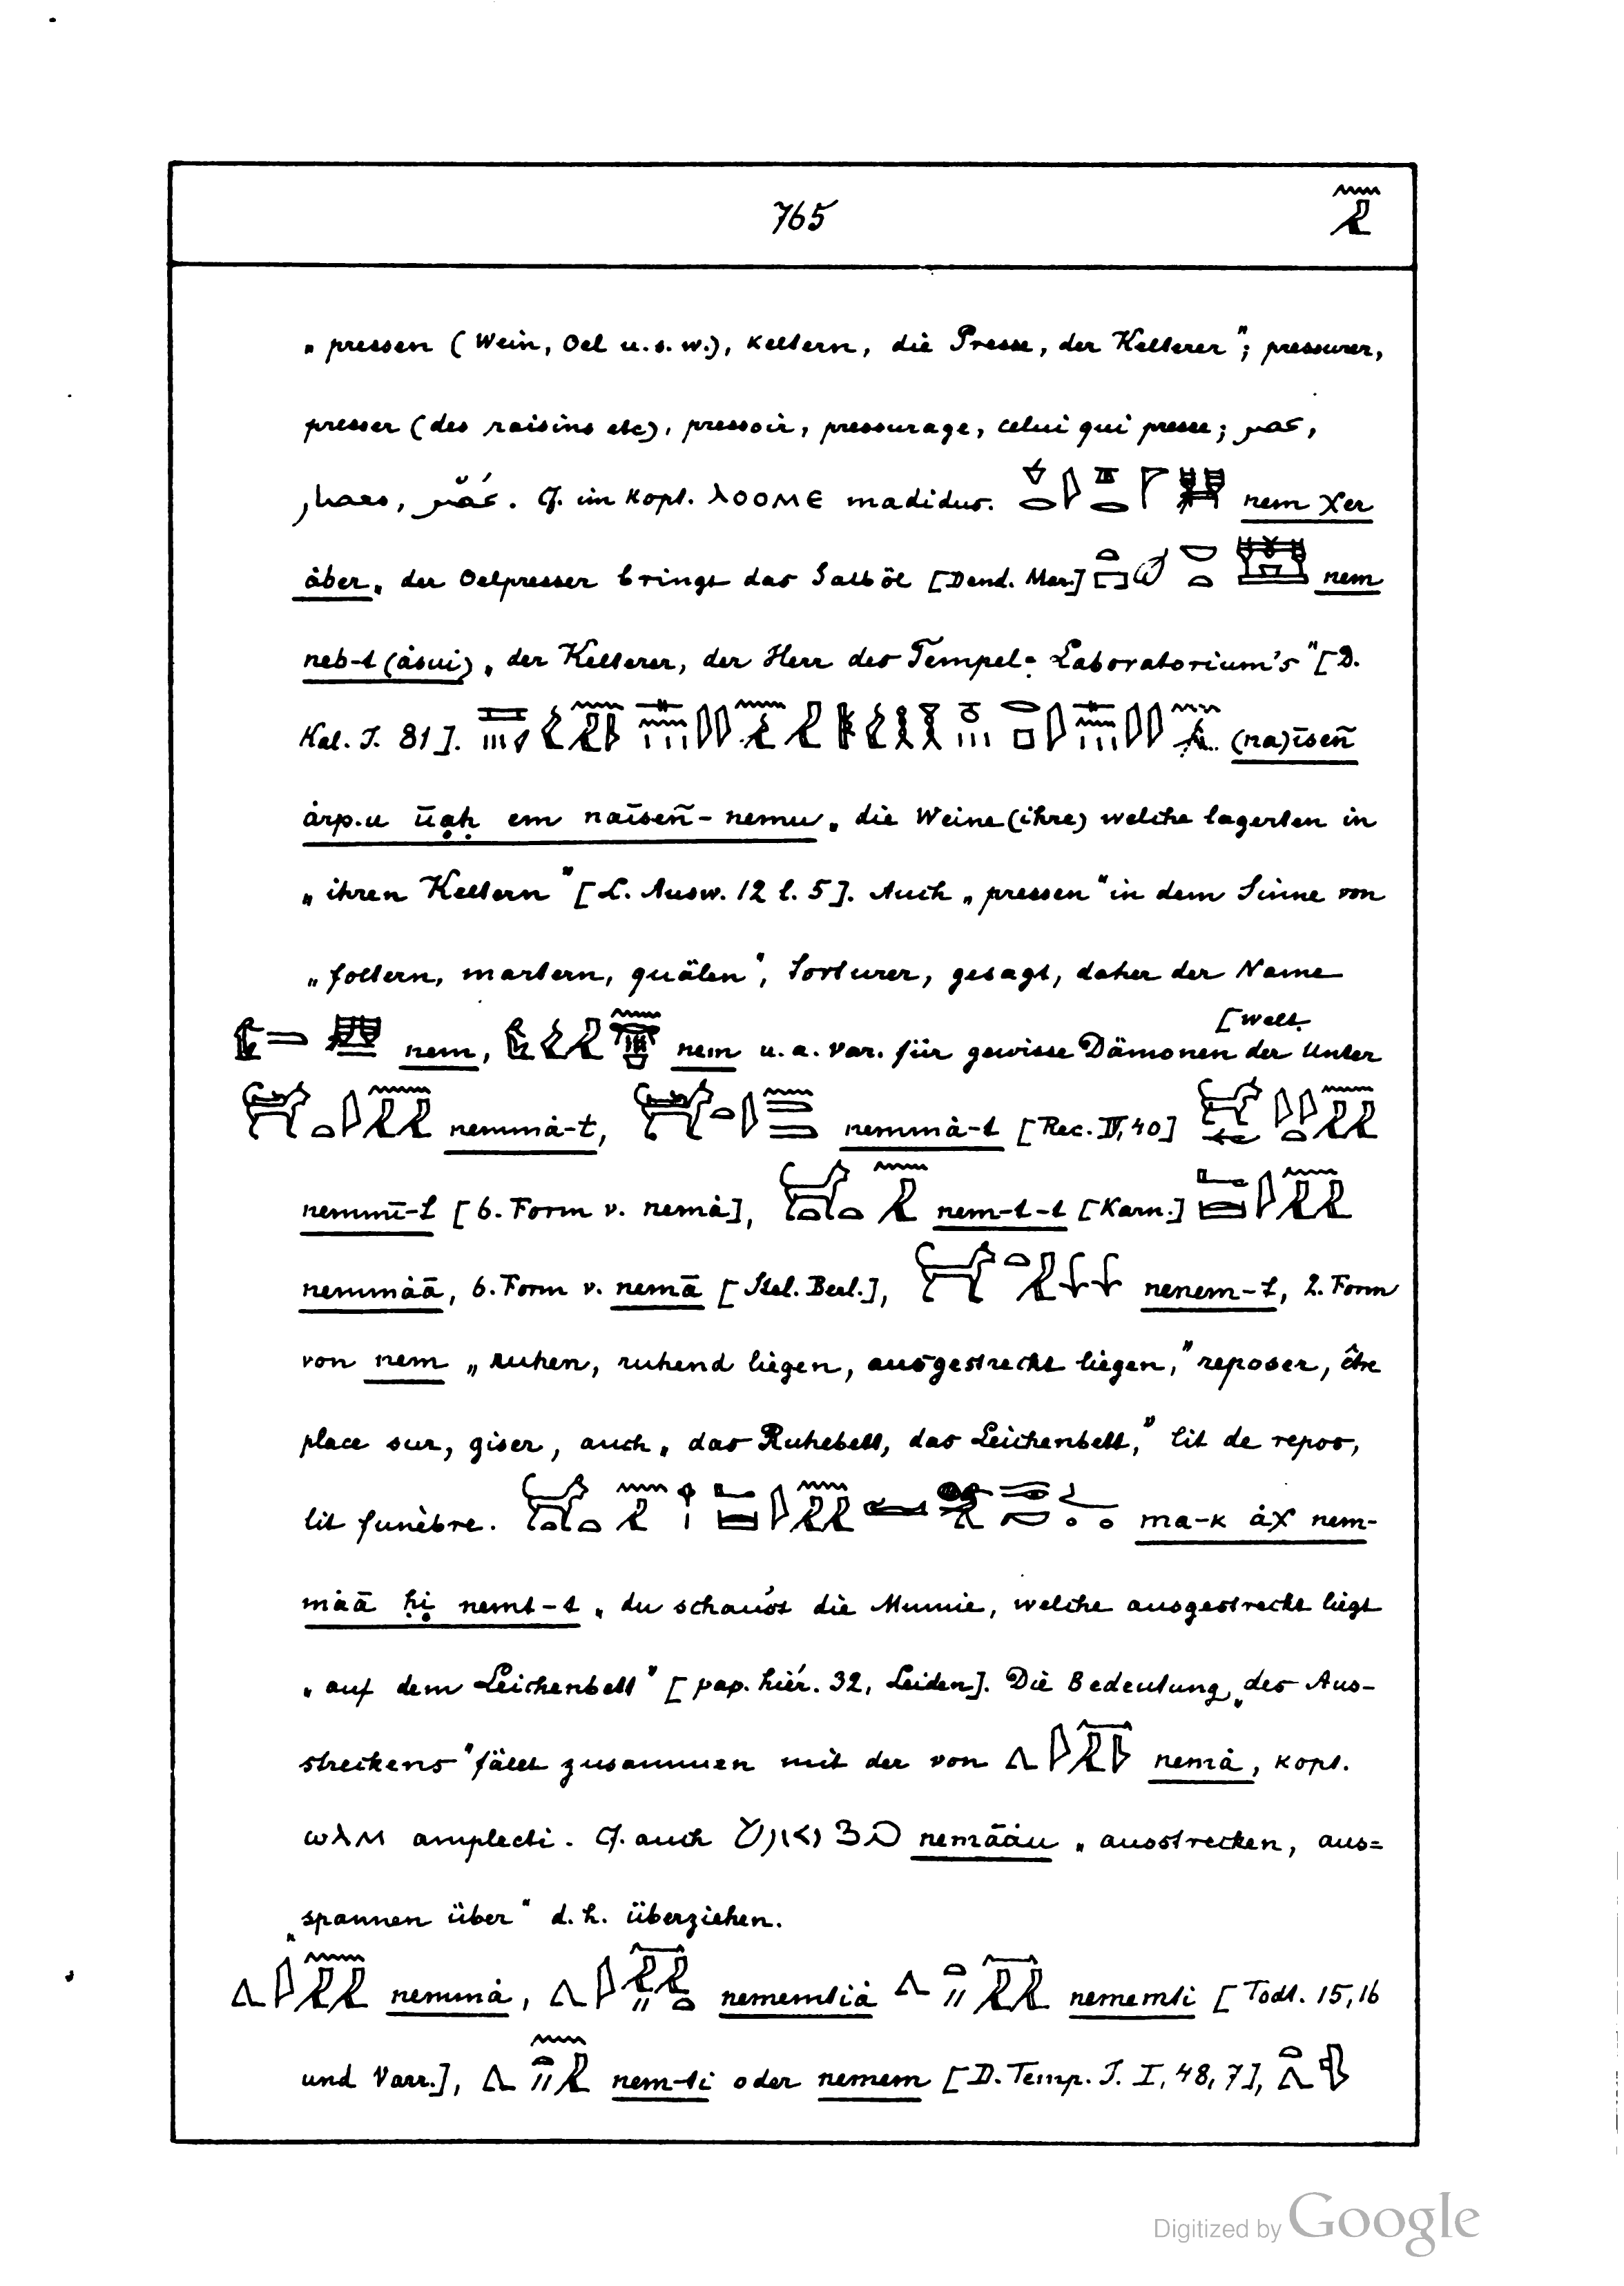 765
„pressen (Wein, Oel u.s.w.), Keltern, die Presse, der Kelterer"; pressurer,
presser (des raisins etc), pressoir, pressurage, celui qui presse; عصر,
معصار, عصّار. Cf. im Kopt. λοομε madidus. nem χer
åber „der Oelpresser bringt das Salböl [Dend. Mar.] nem
neb-t (åsui) „der Kelterer, der Herr des Tempel-Laboratorium's" [D.
Kal. I. 81]. (na)īsen̄
årp.u ūaḥ em naīsen̄-nemu „die Weine (ihre) welche lagerten in
„ihren Keltern" [L. Ausw. 12 l. 5]. Auch „pressen" in dem Sinne von
„foltern, martern, quälen", torturer, gesagt, daher der Name
[welt.
nem, nem u. a. Var. für gewisse Dämonen der Unter
nemmå-t, nemmå-t [Rec. IV, 40]
nemmī-t [6. Form v. nemå], nem-t-t [Karn.]
nemmåā, 6. Form v. nemā [Stel. Berl.], nenem-t, 2. Form
von nem „Ruhen, ruhend liegen, ausgestreckt liegen," reposer, être
place sur, giser, auch „das Ruhebett, das Leichenbett," lit de repos,
lit funèbre. ma-k åχ nem-
måā ḥi nemt-t „du schau'st die Mumie, welche ausgestreckt liegt
„auf dem Leichenbett" [pap. hiér. 32, Leiden]. Die Bedeutung „des Aus-
streckens" fällt zusammen mit der von nemå, kopt.
ωλм amplecti. Cf. auch nemāåu „ausstrecken, aus=
„spannen über" d.h. überziehen.
nemmå, nememtiå nememti [Todt. 15,16
und Varr.], nem-ti oder nemem [D. Temp. I. I, 48, 7],
Digitized by Google